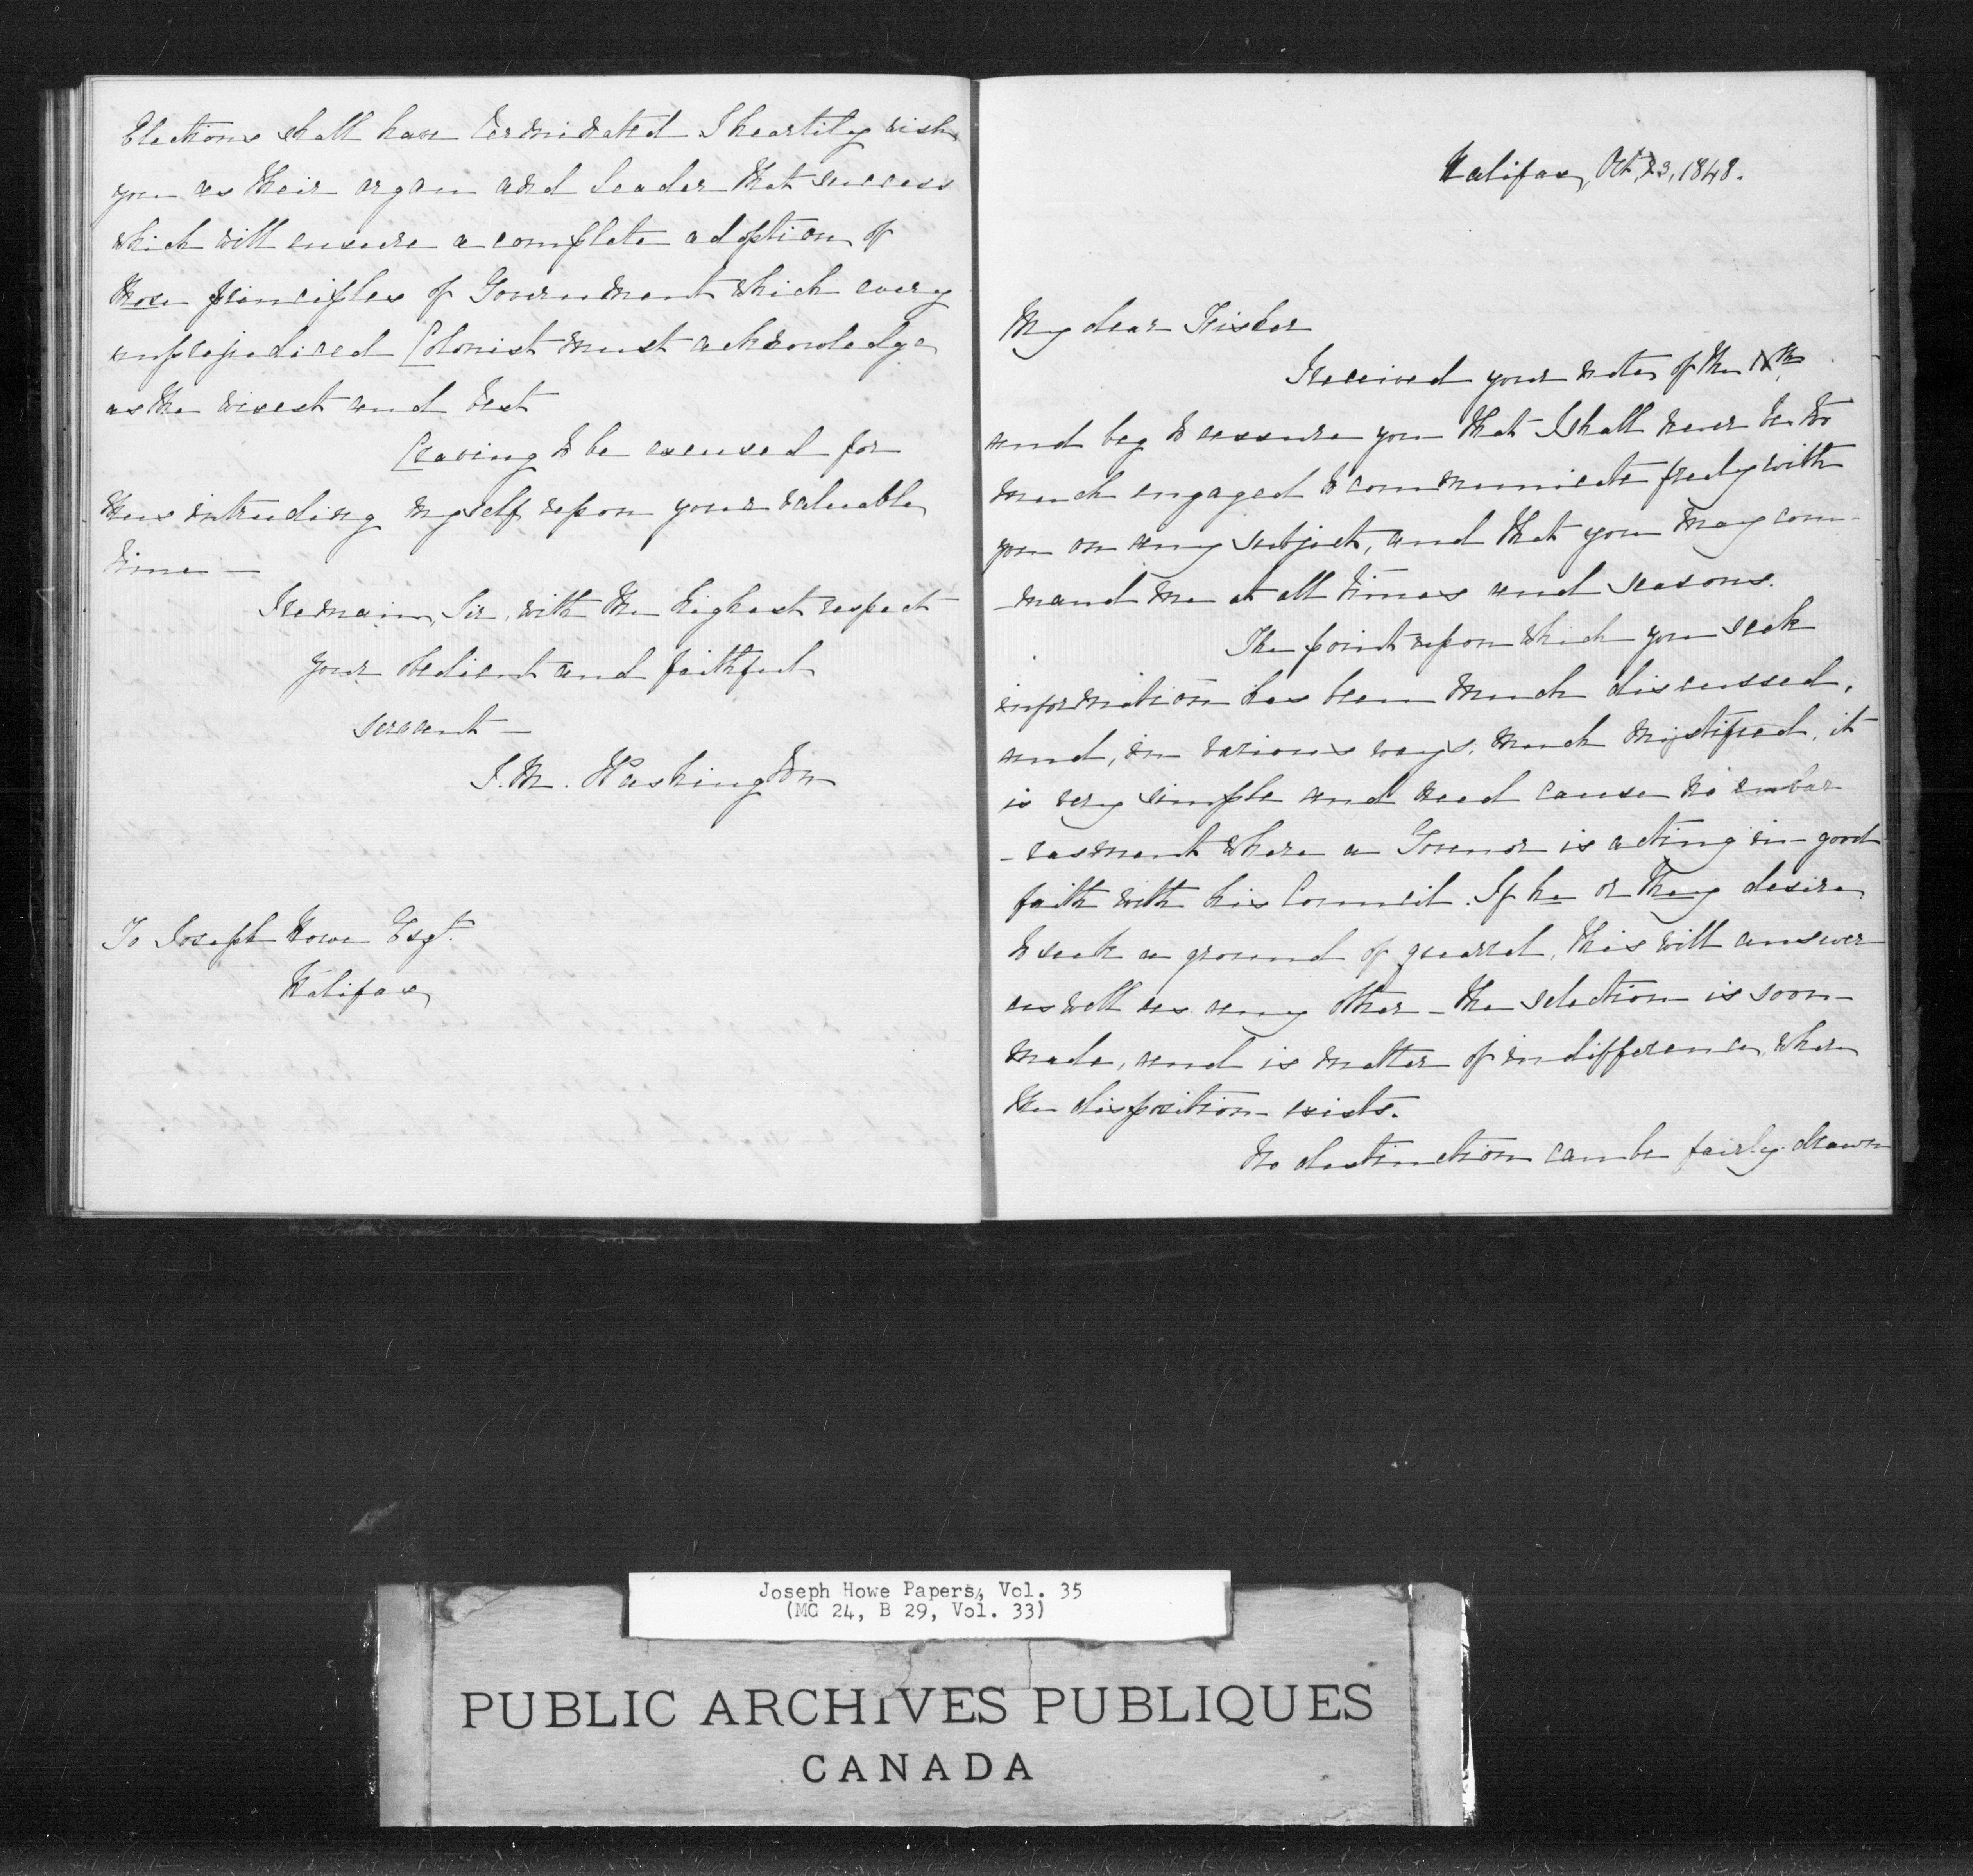 Elections shall have terminated I heartily wish
you as their organ and leader that success
which will ensure a complete adoption of
those principles of Government which every
unprejudiced Colonist must acknowledge
as the wisest and best
Craving to be excused for
thus intruding myself upon your valuable
time —
I remain, Sir, with the highest respect
your obedient and faithful
servant —
J. M. Washington
To Joseph Howe Esqr.
Halifax
Halifax, Oct. 23, 1848.
My dear Fisher
I received your note of the
and beg to assure you that I shall never be too
much engaged to communicate freely with
you on any subject, and that you may com-
-mand me at all times and seasons.
The point upon which you seek
information has been much discussed,
and, in various ways, much mystified, it
is very simple and need cause no embar
-rasment where a Govenor is acting in good
faith with his Council. If he or they desire
to seek a ground of quarrel, this will answer
as well as any other – the selection is soon
made, and is matter of indifference, where
the disposition exists.
No destinction can be fairly drawn
Joseph Howe Papers, Vol. 35
(MG 24, B 29, Vol. 33)
PUBLIC ARCHIVES PUBLIQUES
CANADA